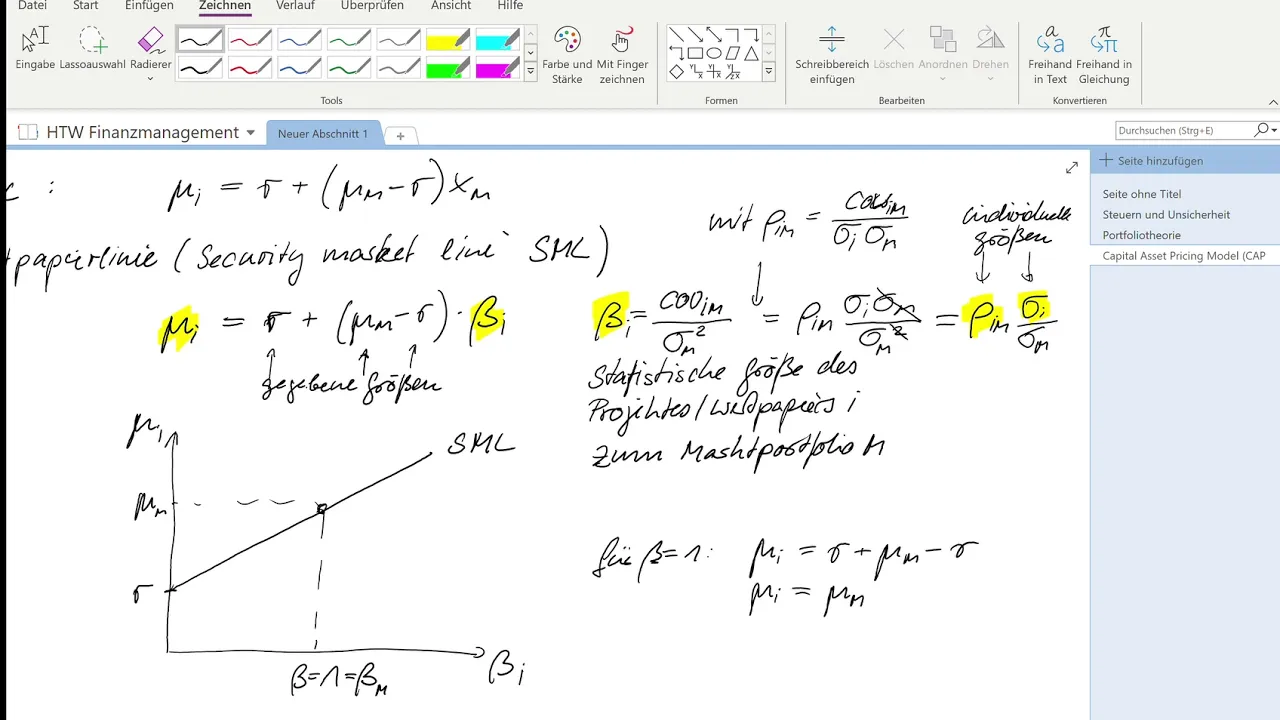 Datei Start Einfügen Zeichnen Verlauf Überprüfen Ansicht Hilfe
Eingabe Lassoauswahl Radierer
Farbe und Stärke
Mit Finger zeichnen
Schreibbereich einfügen
Löschen Anordnen Drehen
Freihand in Text
Freihand in Gleichung
Tools Formen Bearbeiten Konvertieren
HTW Finanzmanagement
Neuer Abschnitt 1
Durchsuchen (Strg+E)
Seite hinzufügen
Seite ohne Titel
Steuern und Unsicherheit
Portfoliotheorie
Capital Asset Pricing Model (CAP
: μi = r + (μM − r) xM
tpapierlinie (Security market line SML)
mit ρiM = coviM / σi σM
individuelle
größen
μi = r + (μM − r) · βi
βi = coviM / σM² = ρiM σi σM / σM² = ρiM σi / σM
gegebene größen
Statistische größe des
Projektes/Wertpapiers i
zum Marktportfolio M
μi
SML
μM
r
β=1=βM
βi
für β=1: μi = r + μM − r
μi = μM